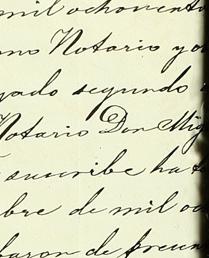 mil ochocientos
mo Notario y
gado segundo
Notario Don Mig
suscribe ha
bre de mil oc
baron de